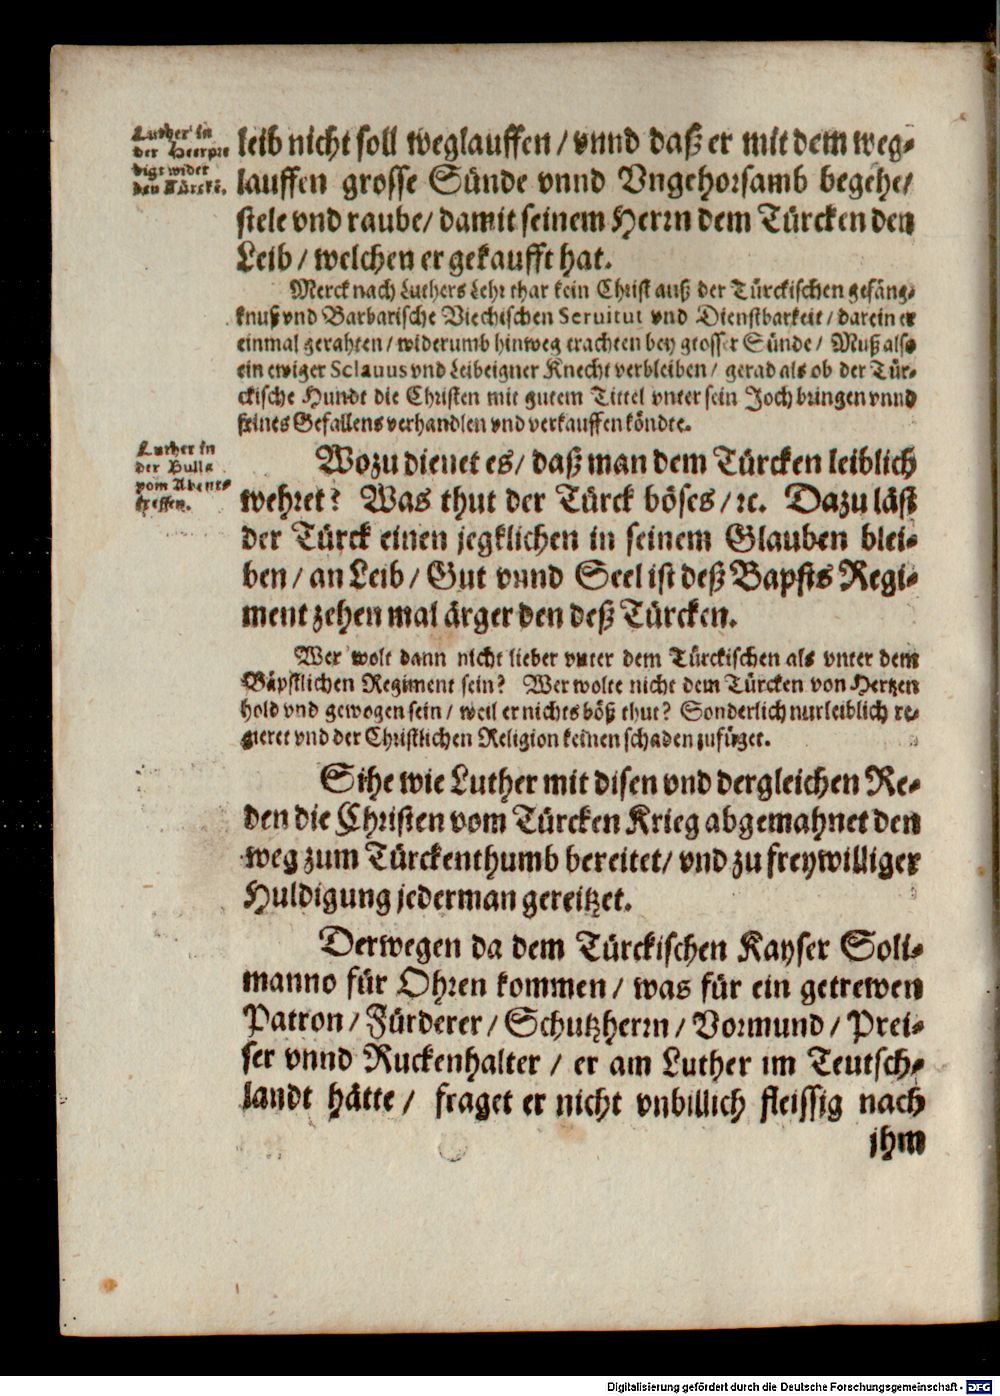 Luther in
der Heerpre
digt wider
den Türckē.
leib nicht soll weglauffen / vnnd daß er mit dem weg-
lauffen grosse Sünde vnnd Vngehorsamb begehe/
stele vnd raube/ damit seinem Herrn dem Türcken den
Leib / welchen er gekaufft hat.
Merck nach Luthers Lehr thar kein Christ auß der Türckischen gefäng-
knuß vnd Barbarische Viechischen Seruitut vnd Dienstbarkeit / darein er
einmal gerahten / widerumb hinweg trachten bey grosser Sünde / Muß also
ein ewiger Sclauus vnd Leibeigner Knecht verbleiben / gerad als ob der Tür-
ckische Hundt die Christen mit gutem Tittel vnter sein Joch bringen vnnd
seines Gefallens verhandlen vnd verkauffen köndte.
Luther in
der Bulla
vom Abent-
fressen.
Wozu dienet es/ daß man dem Türcken leiblich
wehret? Was thut der Türck böses / ꝛc. Dazu läst
der Türck einen jegklichen in seinem Glauben blei-
ben / an Leib / Gut vnnd Seel ist deß Bapsts Regi-
ment zehen mal ärger den deß Türcken.
Wer wolt dann nicht lieber vnter dem Türckischen als vnter dem
Bäpstlichen Regiment sein? Wer wolte nicht dem Türcken von Hertzen
hold vnd gewogen sein / weil er nichts böß thut? Sonderlich nur leiblich re-
gieret vnd der Christlichen Religion keinen schaden zufüget.
Sihe wie Luther mit disen vnd dergleichen Re-
den die Christen vom Türcken Krieg abgemahnet den
weg zum Türckenthumb bereitet/ vnd zu freywilliger
Huldigung jederman gereitzet.
Derwegen da dem Türckischen Kayser Soli-
manno für Ohren kommen / was für ein getrewen
Patron / Fürderer / Schutzherrn / Vormund / Prei-
ser vnnd Ruckenhalter / er am Luther im Teutsch-
landt hätte / fraget er nicht vnbillich fleissig nach
jhm
Digitalisierung gefördert durch die Deutsche Forschungsgemeinschaft - DFG